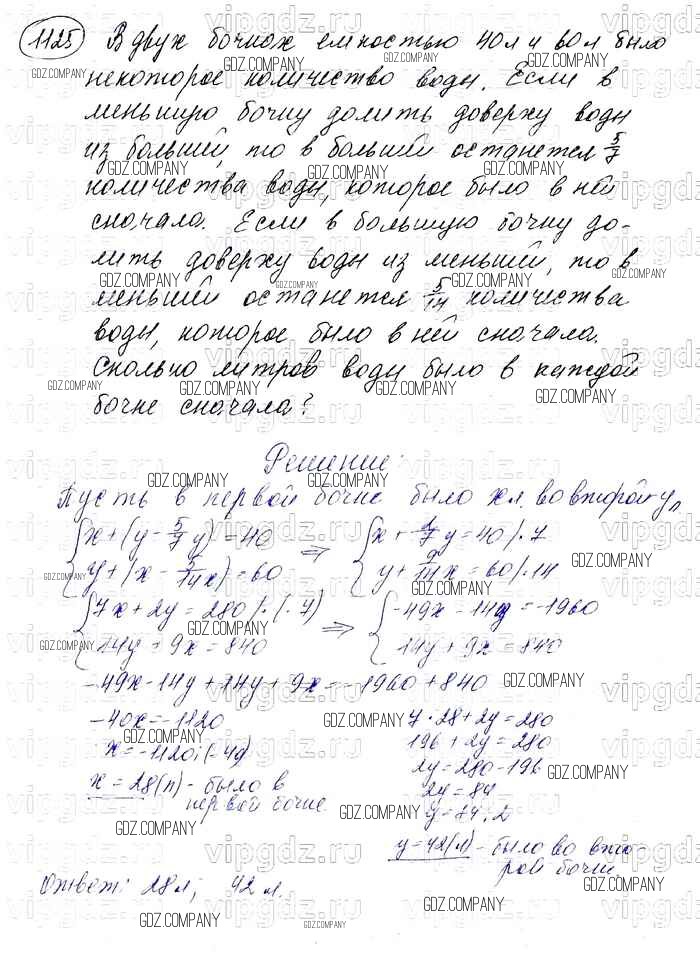 1125 В двух бочках емкостью 40л и 60л было
некоторое количество воды. Если в
меньшую бочку долить доверху воды
из большей, то в большей останется 5/7
количества воды, которое было в ней
сначала. Если в большую бочку до-
лить доверху воды из меньшей, то в
меньшей останется 5/14 количества
воды, которое было в ней сначала.
Сколько литров воды было в каждой
бочке сначала?
Решение:
Пусть в первой бочке было x л. во второй - y л
x + (y - 5/7 y) = 40 ⇒ x + 2/7 y = 40 /· 7
y + (x - 5/14 x) = 60 y + 9/14 x = 60 /· 14
7x + 2y = 280 /· (-7) ⇒ -49x - 14y = -1960
14y + 9x = 840 14y + 9x = 840
-49x - 14y + 14y + 9x = -1960 + 840
-40x = -1120
x = -1120 : (-40)
x = 28 (л) - было в
первой бочке
7 · 28 + 2y = 280
196 + 2y = 280
2y = 280 - 196
2y = 84
y = 84 : 2
y = 42 (л) - было во вто-
рой бочке.
Ответ: 28л; 42 л.
vipgdz.ru
GDZ.COMPANY